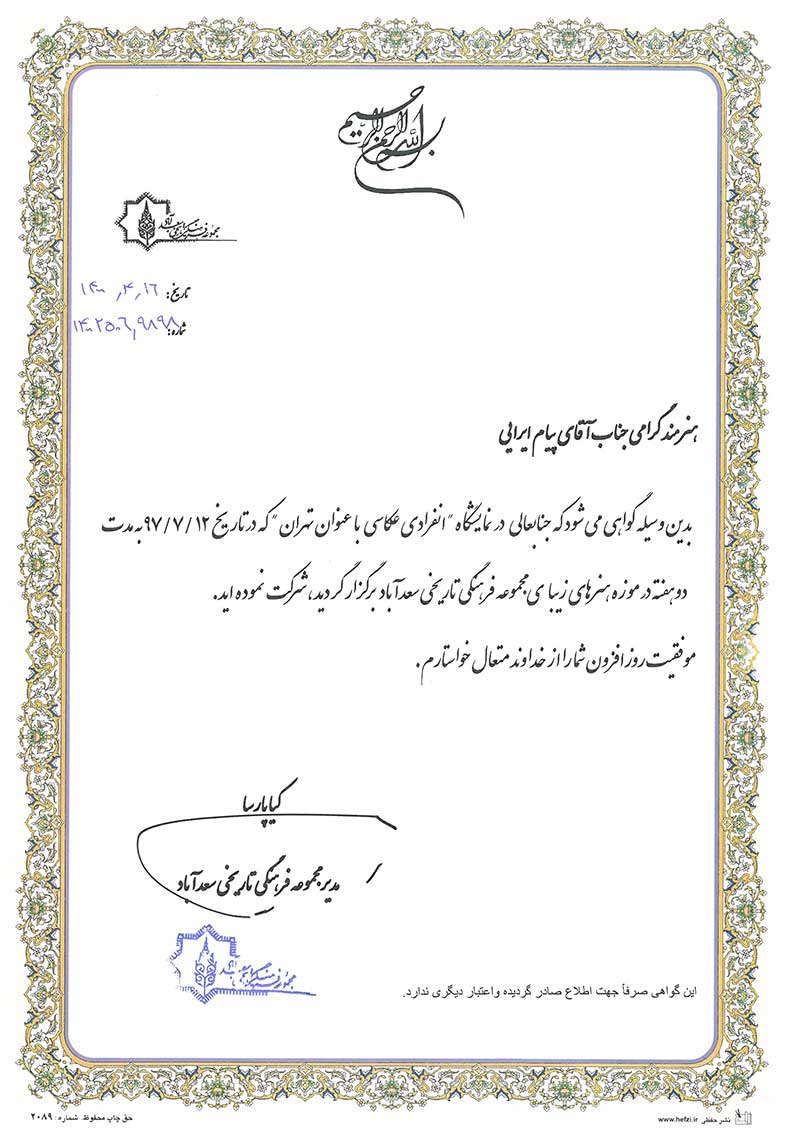 بسم الله الرحمن الرحیم
مجموعه فرهنگی تاریخی سعدآباد
تاریخ: ۱۴۰۰,۴,۱۶
شماره:
هنرمند گرامی جناب آقای پیام ایرایی
بدین وسیله گواهی می شود که جنابعالی در نمایشگاه "انفرادی عکاسی با عنوان تهران" که در تاریخ ۹۷/۷/۱۲ به مدت
دو هفته در موزه هنرهای زیبای مجموعه فرهنگی تاریخی سعدآباد برگزار گردید، شرکت نموده اید.
موفقیت روز افزون شما را از خداوند متعال خواستارم.
کیا پارسا
مدیر مجموعه فرهنگی تاریخی سعدآباد
مجموعه فرهنگی تاریخی سعدآباد
این گواهی صرفاً جهت اطلاع صادر گردیده واعتبار دیگری ندارد.
نشر حفظی www.hefzi.ir
حق چاپ محفوظ. شماره: ۲۰۸۹